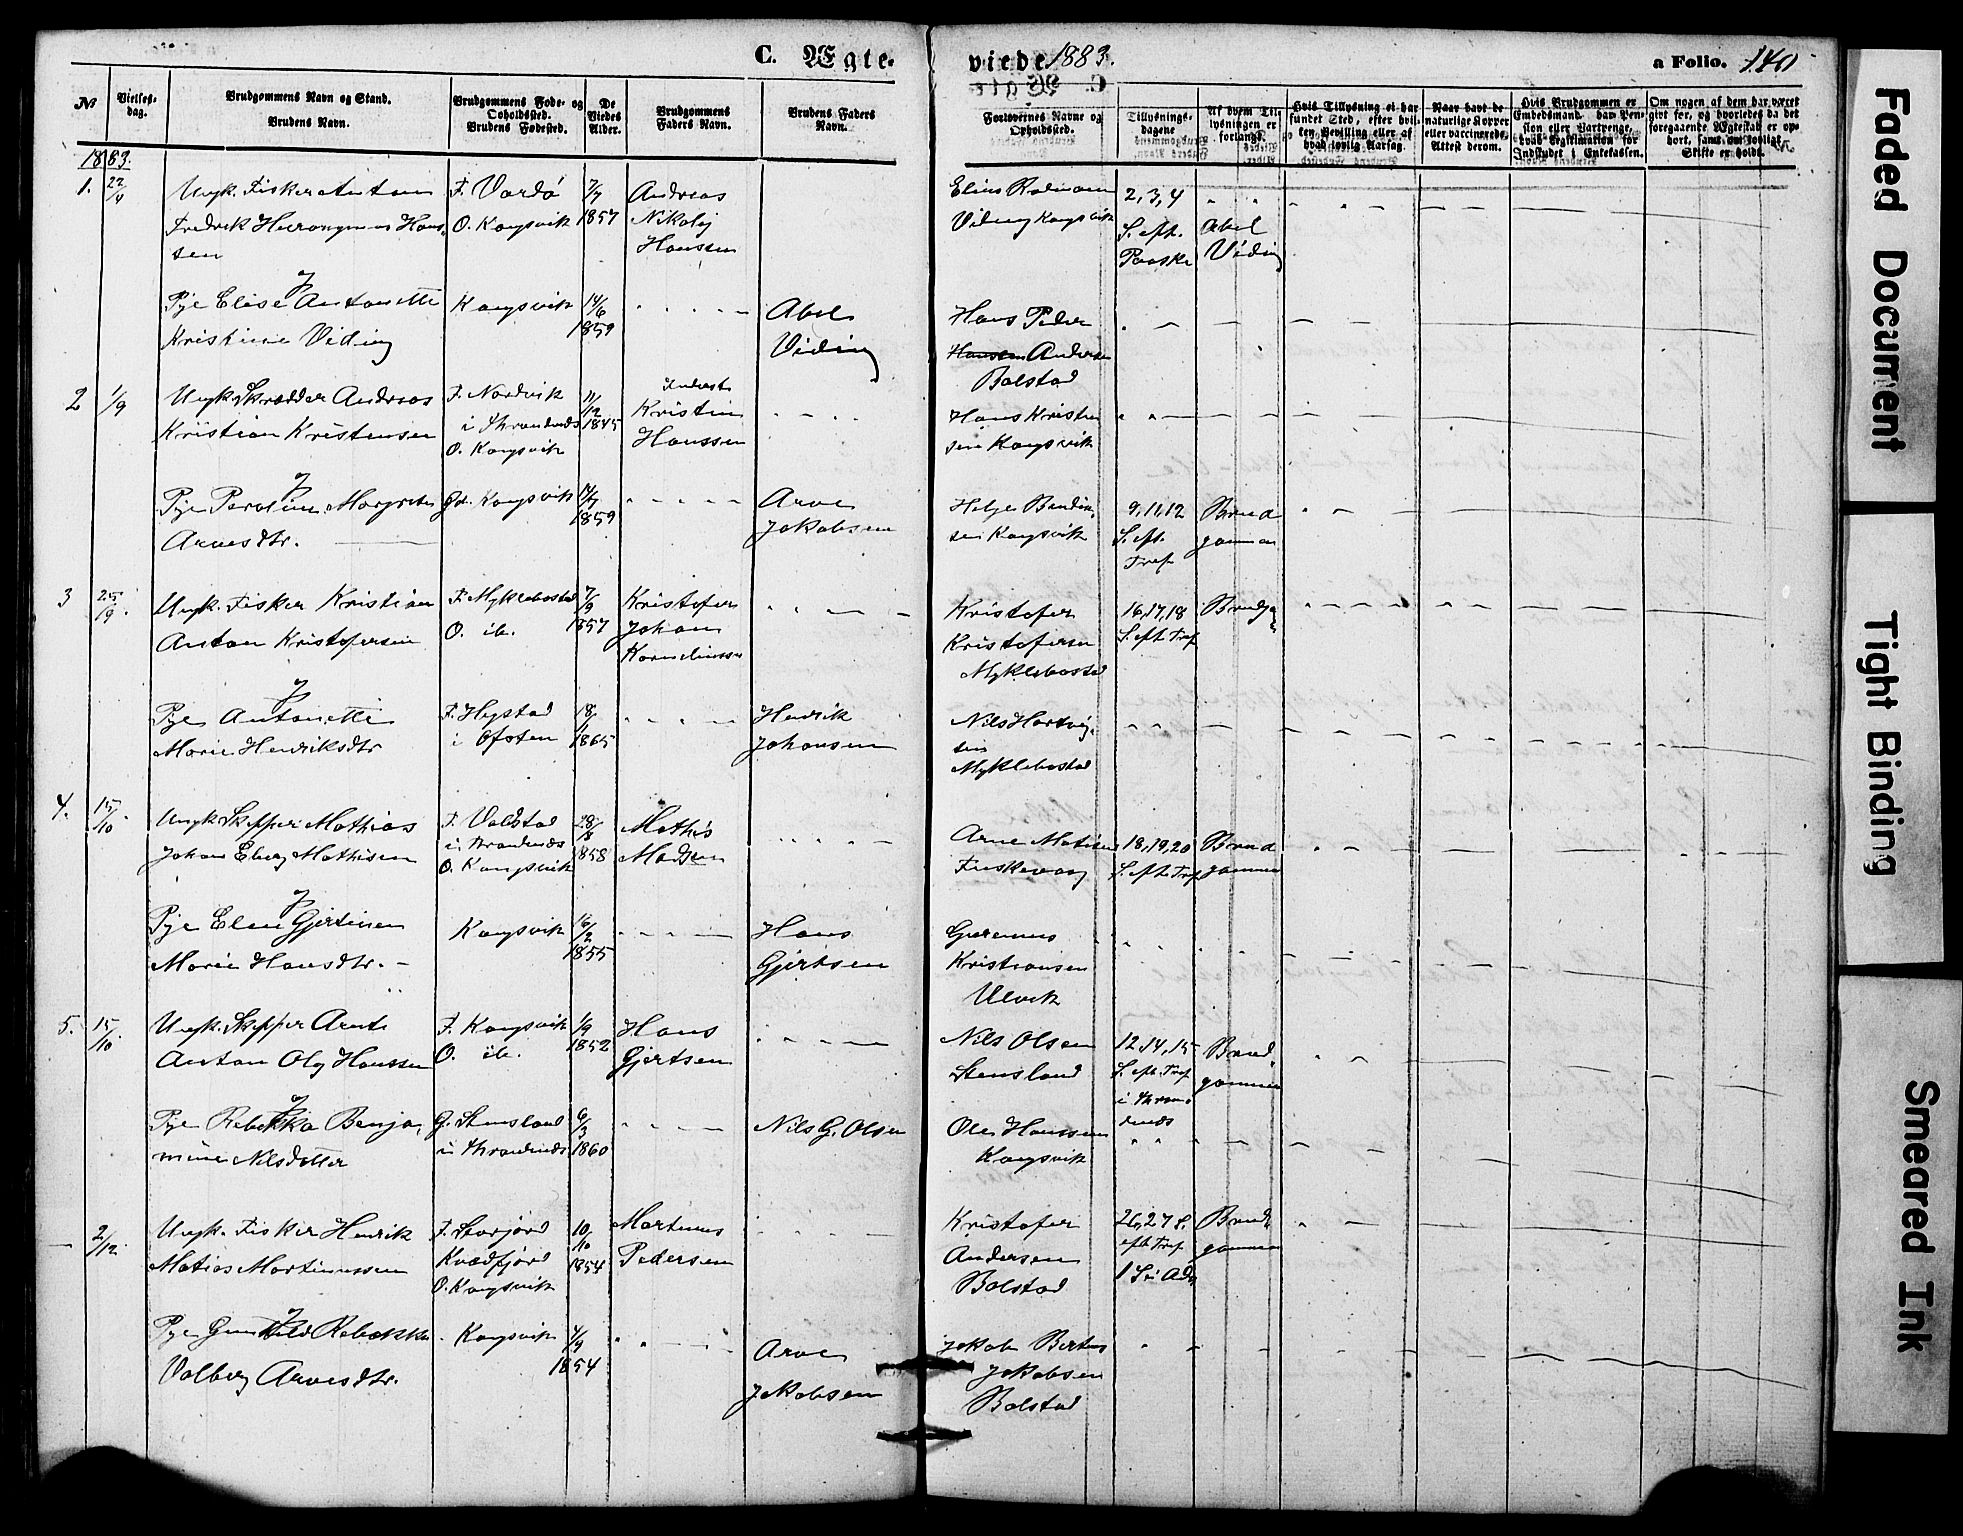 C. Ægte-
viede 1883.
a Folio. 140
№
Vielses-
dag.
Brudgommens Navn og Stand.
Brudens Navn.
Brudgommens Føde- og
Opholdssted.
Brudens Fødested.
De
Viedes
Alder.
Brudgommens
Faders Navn.
Brudens Faders
Navn.
Forlovernes Navne og
Opholdssted.
Tillysnings-
dagene
Af hvem Til-
lysningen er
forlangt.
Hvis Tillysning ei har
fundet Sted, efter hvil-
ken Bevilling eller af
hvad lovlig Aarsag.
Naar havt de
naturlige Kopper
eller vaccinerede,
Attest derom.
Hvis Brudgommen er
Embedsmand, har Pen-
sion eller Vartpenge,
hvad Legitimation for
Indskydet i Enkekassen.
Om nogen af dem har været
gift før, og hvorledes da det
foregaaende Ægteskab er op-
hørt, samt om lovligt
Skifte er holdt.
1883.
1. 22/4 Ungk. Fisker Anton
Fredrik Hieronymus Hans-
sen
F. Vardø
O. Kongsvik
7/7
1857
Andreas
Nikolaj
Hanssen
Elius
Viding Kongsvik
2, 3, 4
S. eft.
Paaske
Abel
Viding
Pige Elise Antonette
Kristine Viding
Kongsvik
14/6
1859
Abel
Viding
Hans Peder
Hanssen Andersen
Bolstad
2 1/9 Ungk. Skrædder Andreas
Kristian Kristensen
F. Nordvik
i Thrandenæs
O. Kongsvik
11/12
1845
Kristen
Hanssen
Hans Kristen
sen Kongsvik
Pige Margrethe
Arnesdtr.
Kongsvik
1859
Arne
Jakobsen
Helge
sen Kongsvik
9, 11, 12
S. eft.
Tref
Brud
gommen
3 25/9 Ungk. Fisker Kristian
Anton Kristofersen
F. Myklebostad
O. ib.
7/9
1857
Kristofer
Johan
Korneliussen
Kristofer
Kristofersen
Myklebostad
16, 17, 18
S. eft. Tref
Brudg
Pige Antonette
Marie Henriksdtr
F. Hystad
i Ofoten
18/1
1865
Henrik
Johansen
Nils Hartvig-
sen
Myklebostad
4. 15/10 Ungk. Skipper Mathias
Johan Eberg Mathisen
F. Voldstad
i Thrandenæs
O. Kongsvik
28/8
1858
Mathis
Madsen
Arne Matisen
Fuskevaag
18, 19, 20
S. eft. Tref
Brud
gommen
Pige Elen Gjertine
Marie Hansdtr.
Kongsvik
16/2
1855
Hans
Gjertsen
Kristiansen
Ulvik
5. 15/10 Ungk. Skipper Arnt
Anton Olaj Hanssen
F. Kongsvik
O. ib.
1/9
1852
Hans
Gjertsen
Nils Olsen
Stensland
12, 14, 15
S. eft. Tref
i Thran-
denæs
Brud
gommen
Pige Rebekka Benja-
mine Nilsdatter
F. Stensland
i Thrandenæs
6/3
1860
Nils G. Olsen
Ole Hanssen
Kongsvik
2/12 Ungk. Fisker Henrik
Matias Martinussen
F. Storjord
Kvædfjord
O. Kongsvik
10/10
1854
Martinus
Pedersen
Kristofer
Andersen
Bolstad
26, 27 S.
eft Tref
1 S i Adv
Brud
gommen
Pige Gunhild Rebekka
Volberg Arnesdtr.
Kongsvik
4/9
1854
Arne
Jakobsen
Jakob Berteus
Jakobsen
Bolstad
Faded Document
Tight Binding
Smeared Ink